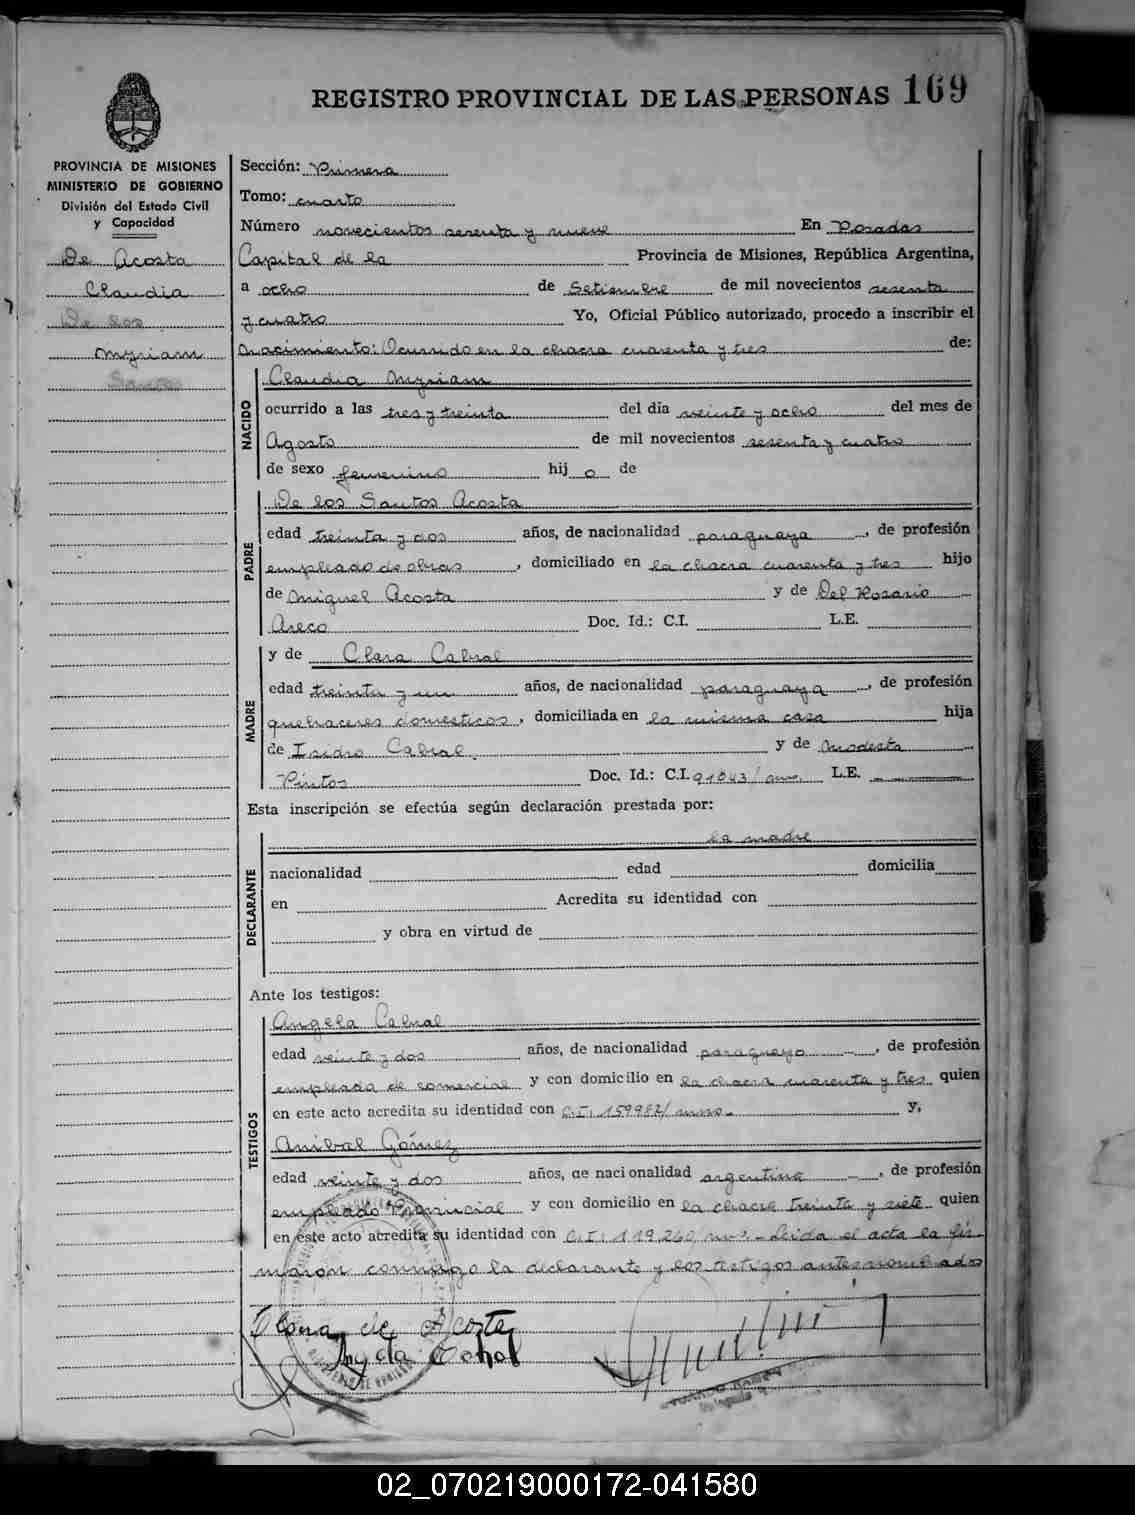 REGISTRO PROVINCIAL DE LAS PERSONAS 169
PROVINCIA DE MISIONES
MINISTERIO DE GOBIERNO
División del Estado Civil
y Capacidad
De Acosta
Claudia
De los
Myriam
Santos
Sección: Primera
Tomo: cuarto
Número novecientos sesenta y nueve En Posadas
Capital de la Provincia de Misiones, República Argentina,
a ocho de Setiembre de mil novecientos sesenta
y cuatro Yo, Oficial Público autorizado, procedo a inscribir el
nacimiento: Ocurrido en la chacra cuarenta y tres de:
NACIDO
Claudia Myriam
ocurrido a las tres y treinta del día veinte y ocho del mes de
Agosto de mil novecientos sesenta y cuatro
de sexo femenino hij o de
PADRE
De los Santos Acosta
edad treinta y dos años, de nacionalidad paraguaya, de profesión
empleado de obras, domiciliado en la chacra cuarenta y tres hijo
de Miguel Acosta y de Del Rosario
Areco Doc. Id.: C.I. L.E.
MADRE
y de Clara Cabral
edad treinta y un años, de nacionalidad paraguaya, de profesión
quehaceres domesticos, domiciliada en la misma casa hija
de Isidro Cabral y de Modesta
Pintos Doc. Id.: C.I. 91843/mns. L.E.
Esta inscripción se efectúa según declaración prestada por:
DECLARANTE
la madre
nacionalidad edad domicilia
en Acredita su identidad con
y obra en virtud de
Ante los testigos:
TESTIGOS
Angela Cabral
edad veinte y dos años, de nacionalidad paraguayo, de profesión
empleada de comercial y con domicilio en la chacra cuarenta y tres quien
en este acto acredita su identidad con C.I. 159982/mns.- y,
Anibal Gómez
edad veinte y dos años, de nacionalidad argentina, de profesión
empleado Provincial y con domicilio en la chacra treinta y siete quien
en este acto acredita su identidad con C.I. 119.260/mns.- Leida el acta la fir-
maron conmigo la declarante y los testigos antes nombrados
Clara de Acosta
02_070219000172-041580